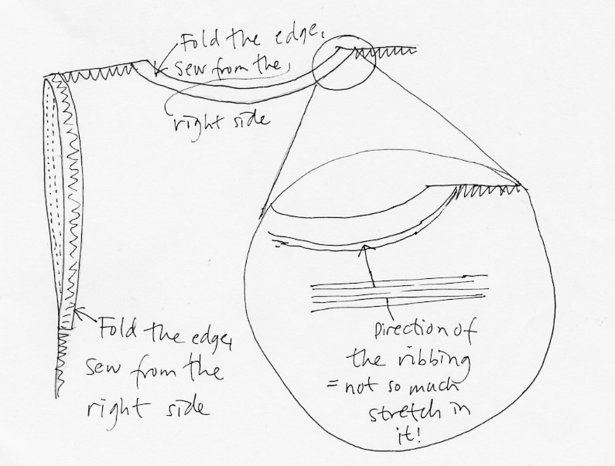 Fold the edge,
sew from the,
right side
Fold the edge,
sew from the
right side
Direction of
the ribbing
= not so much
stretch in
it!